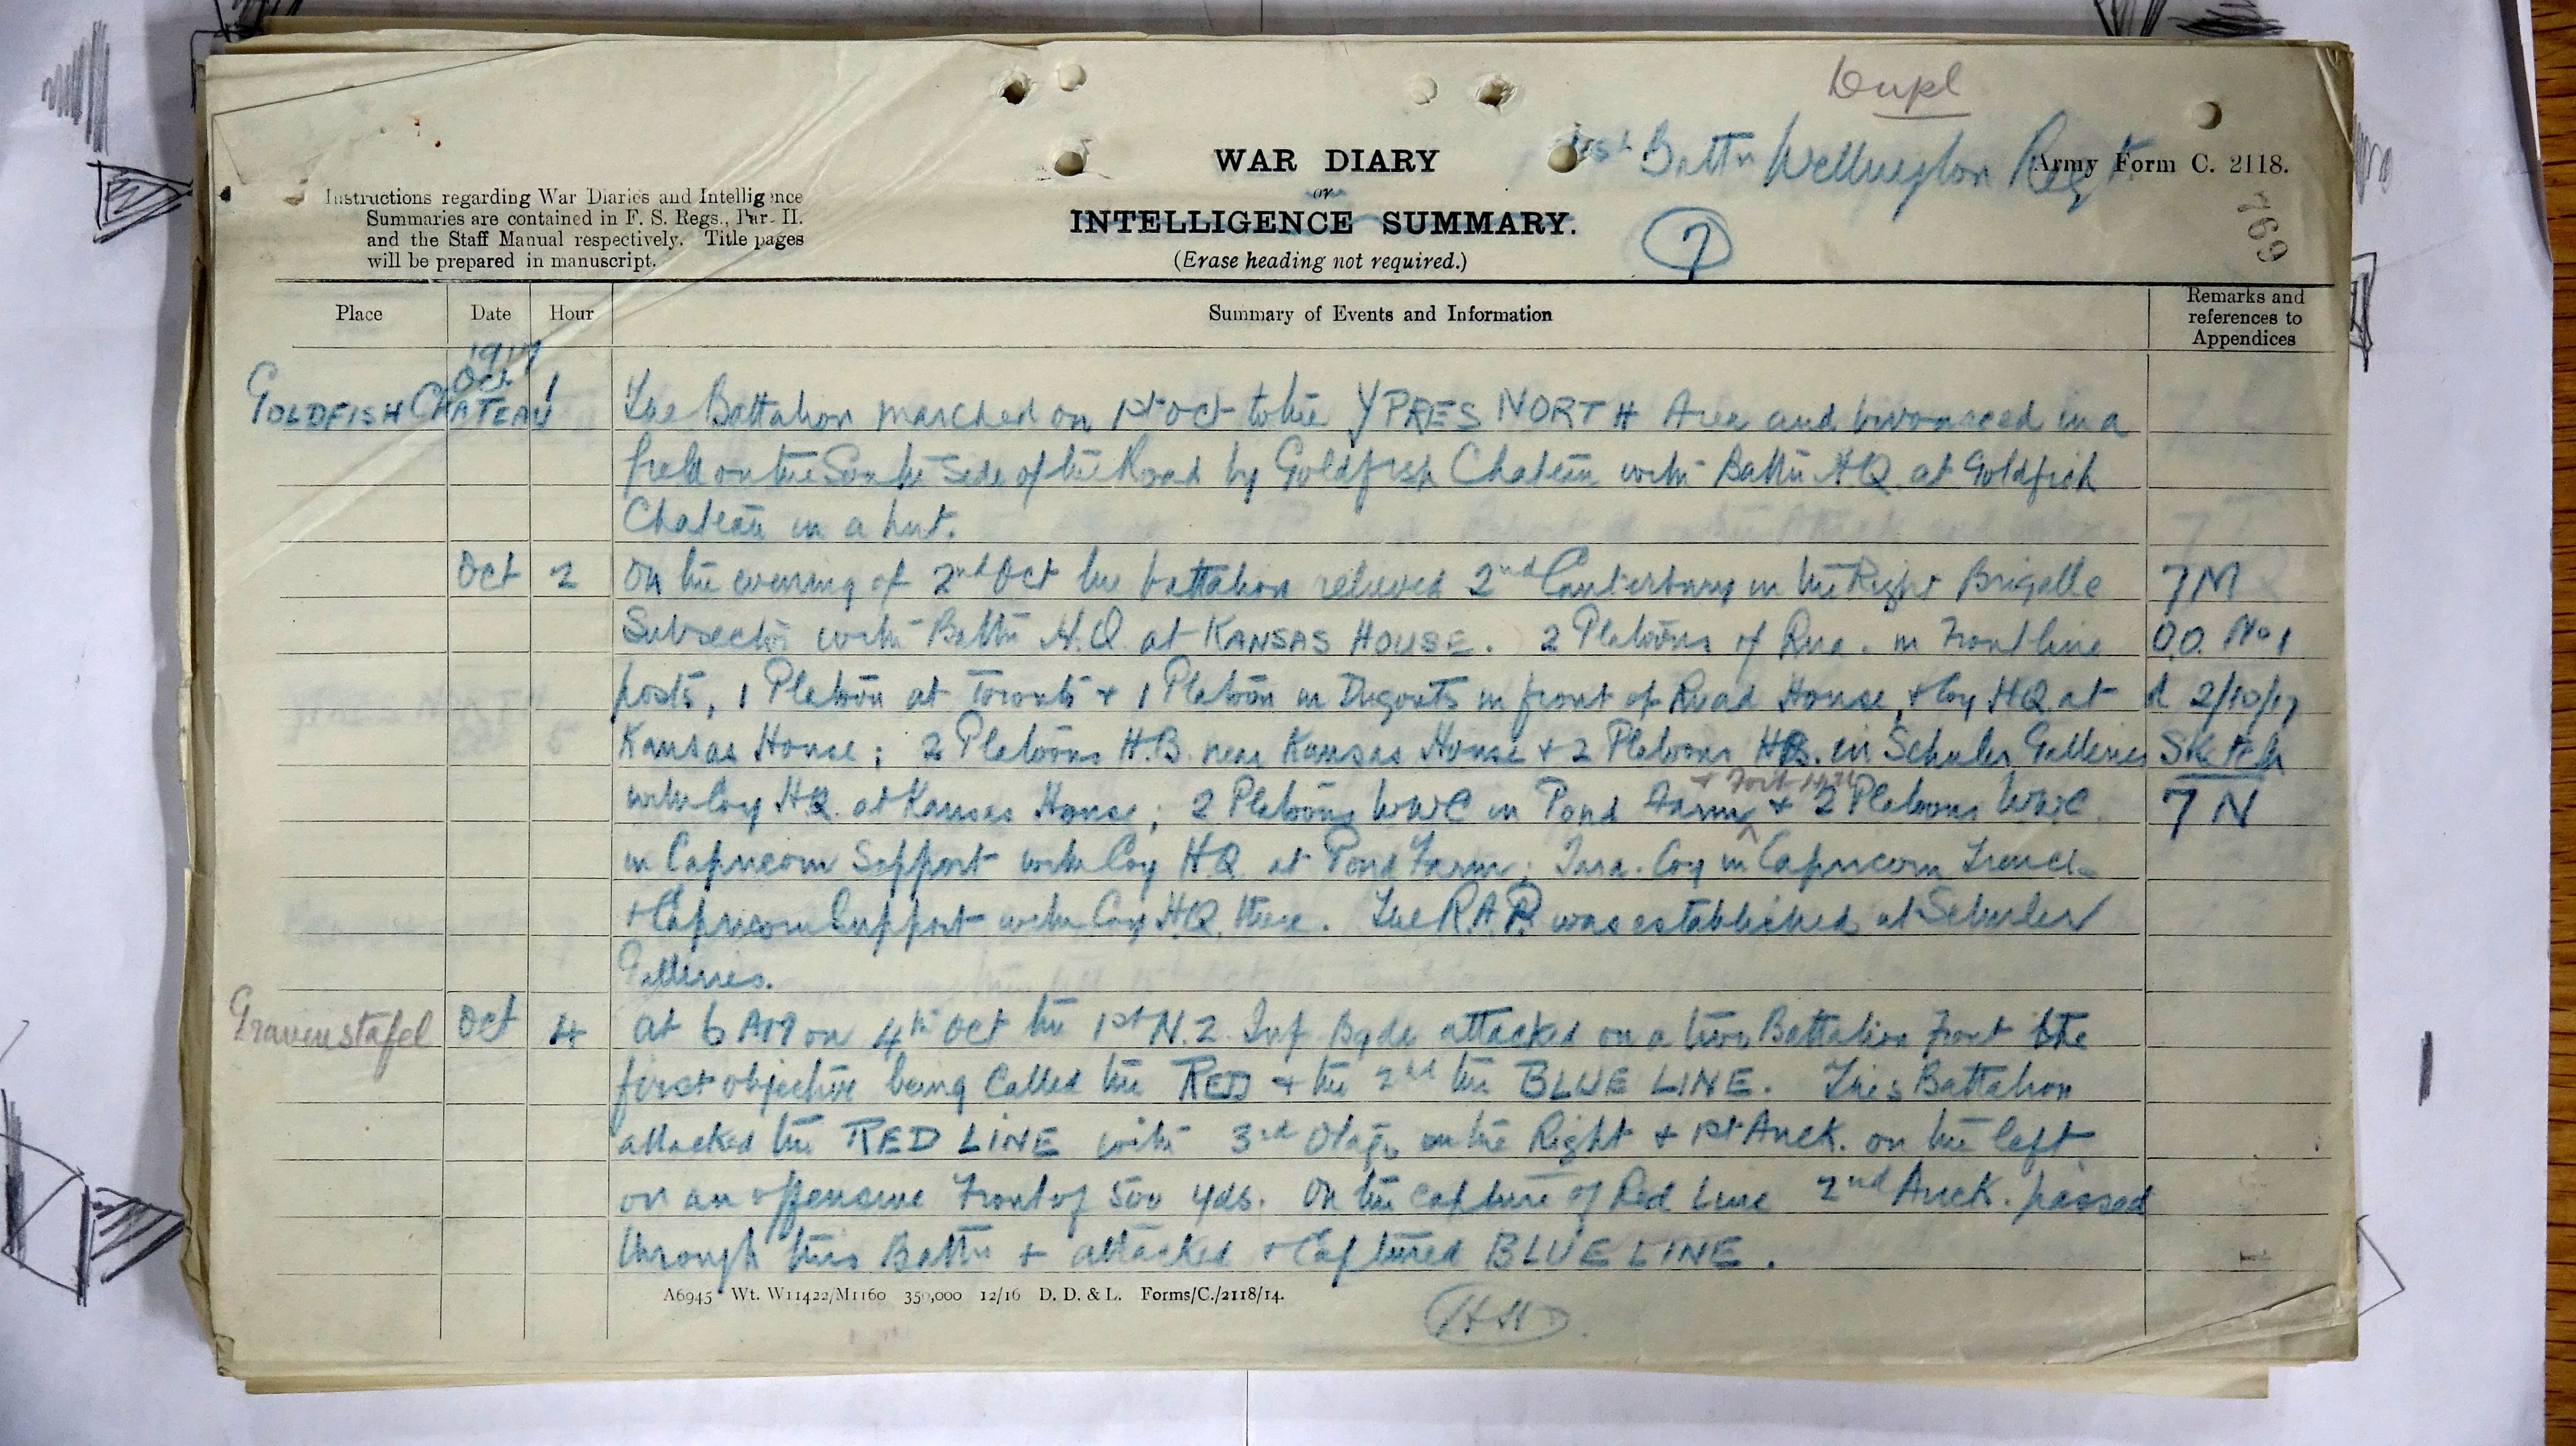 Dupl
1st Battn Wellington Regt
WAR DIARY
or
INTELLIGENCE SUMMARY.
(Erase heading not required.)
Army Form C. 2118.
769
7
Instructions regarding War Diaries and Intelligence
Summaries are contained in F. S. Regs., Par- II.
and the Staff Manual respectively. Title pages
will be prepared in manuscript.
Place Date Hour Summary of Events and Information Remarks and references to Appendices
1917
GOLDFISH CHATEAU Oct 1 The Battalion marched on 1st Oct to the YPRES NORTH Area and bivouaced in a
field on the South Side of the Road by Goldfish Chateau with Battn HQ at Goldfish
Chateau in a hut.
Oct 2 On the evening of 2nd Oct the battalion relieved 2nd Canterbury in the Right Brigade 7M
Subsector with Battn H.Q. at KANSAS HOUSE. 2 Platoons of Rua. in Front line O.O. No 1
posts, 1 Platoon at Toronto + 1 Platoon in Dugouts in front of Road House, + Coy HQ at d 2/10/17
Kansas House; 2 Platoons H.B. near Kansas House + 2 Platoons HB. in Schuler Galleries Sketch
with Coy HQ. at Kansas House; 2 Platoons WWC in Pond Farm + Fort Hill + 2 Platoons WWC. 7N
in Capricorn Support with Coy HQ at Pond Farm; Tara. Coy in Capricorn Trench
+ Capricorn Support with Coy H.Q. there. The R.A.P. was established at Schuler
Galleries.
Gravenstafel Oct 4 At 6 AM on 4th Oct the 1st N.Z. Inf Bgde attacked on a two Battalion Front the
first objective being called the RED + the 2nd the BLUE LINE. This Battalion
attacked the RED LINE with 3rd Otago on the Right + 1st Auck. on the left
on an offensive Front of 500 yds. On the capture of Red Line 2nd Auck. passed
through this Battn + attacked + Captured BLUE LINE.
A6945 Wt. W11422/M1160 350,000 12/16 D. D. & L. Forms/C./2118/14.